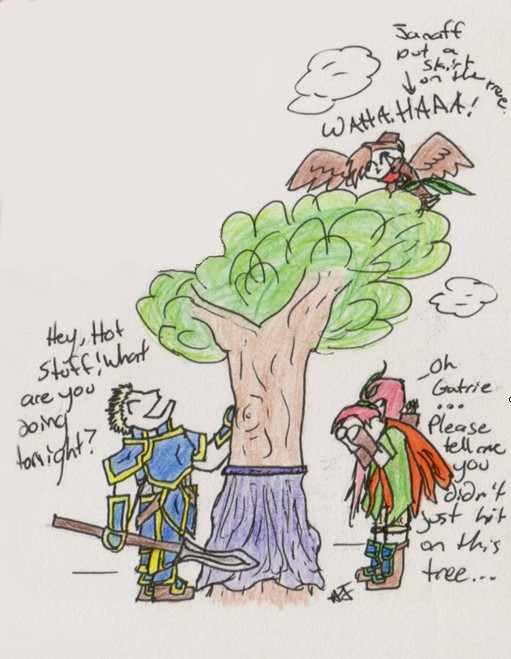 Janaff
put a
skirt
on the tree.
WAHA.HAAA!
Hey, Hot
Stuff, What
are you
doing
tonight?
Oh
Gatrie
...
Please
tell me
you
didn't
just hit
on this
tree...